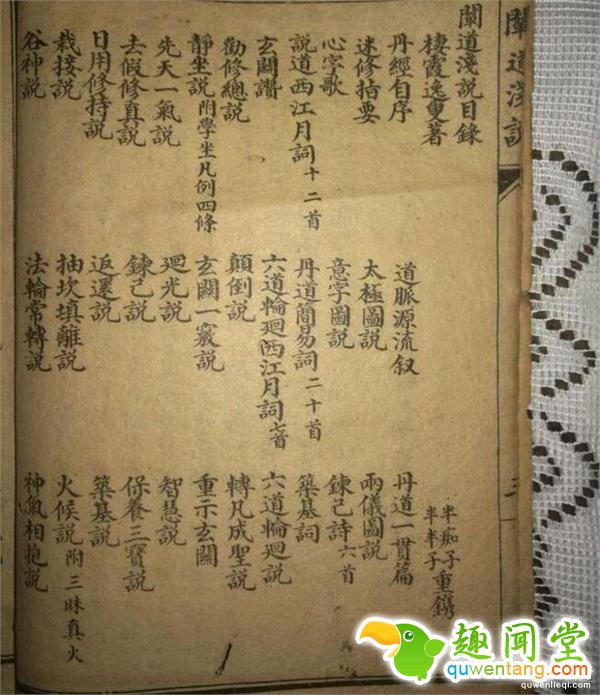 闡道淺説
闡道淺説目錄
棲霞逸叟著 半痴子 半半子 重鐫
丹經自序 道脈源流叙 丹道一貫篇
迷修指要 太極圖説 兩儀圖説
心字歌 意字圖説 鍊己詩六首
説道西江月詞十二首 丹道簡易詞二十首 築基詞
玄關讚 六道輪迴西江月詞七首 六道輪迴説
勸修總説 顛倒説 轉凡成聖説
靜坐説附學坐凡例四條 玄關一竅説 重示玄關
先天一氣説 廻光説 智慧説
去假修真説 鍊己説 保養三寶説
日用修持説 返還説 築基説
栽接説 抽坎填離説 火候説附三昧真火
谷神説 法輪常轉説 神氣相抱説
趣闻堂
quwentang.com
quwenlieqi.com